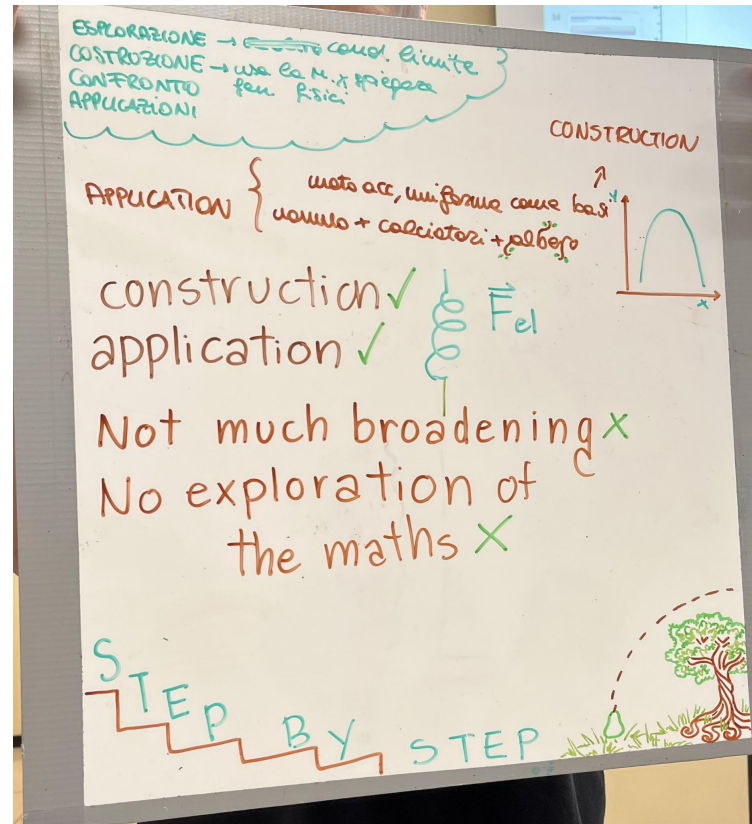 ESPLORAZIONE → cond. limite
COSTRUZIONE → usa la M. x spiegare
CONFRONTO fen fisici
APPLICAZIONI
CONSTRUCTION
APPLICATION { moto acc, uniforme come basi
uomino + calciatori + albero
y
x
construction ✓
application ✓
F⃗el
Not much broadening x
No exploration of
the maths X
STEP BY STEP